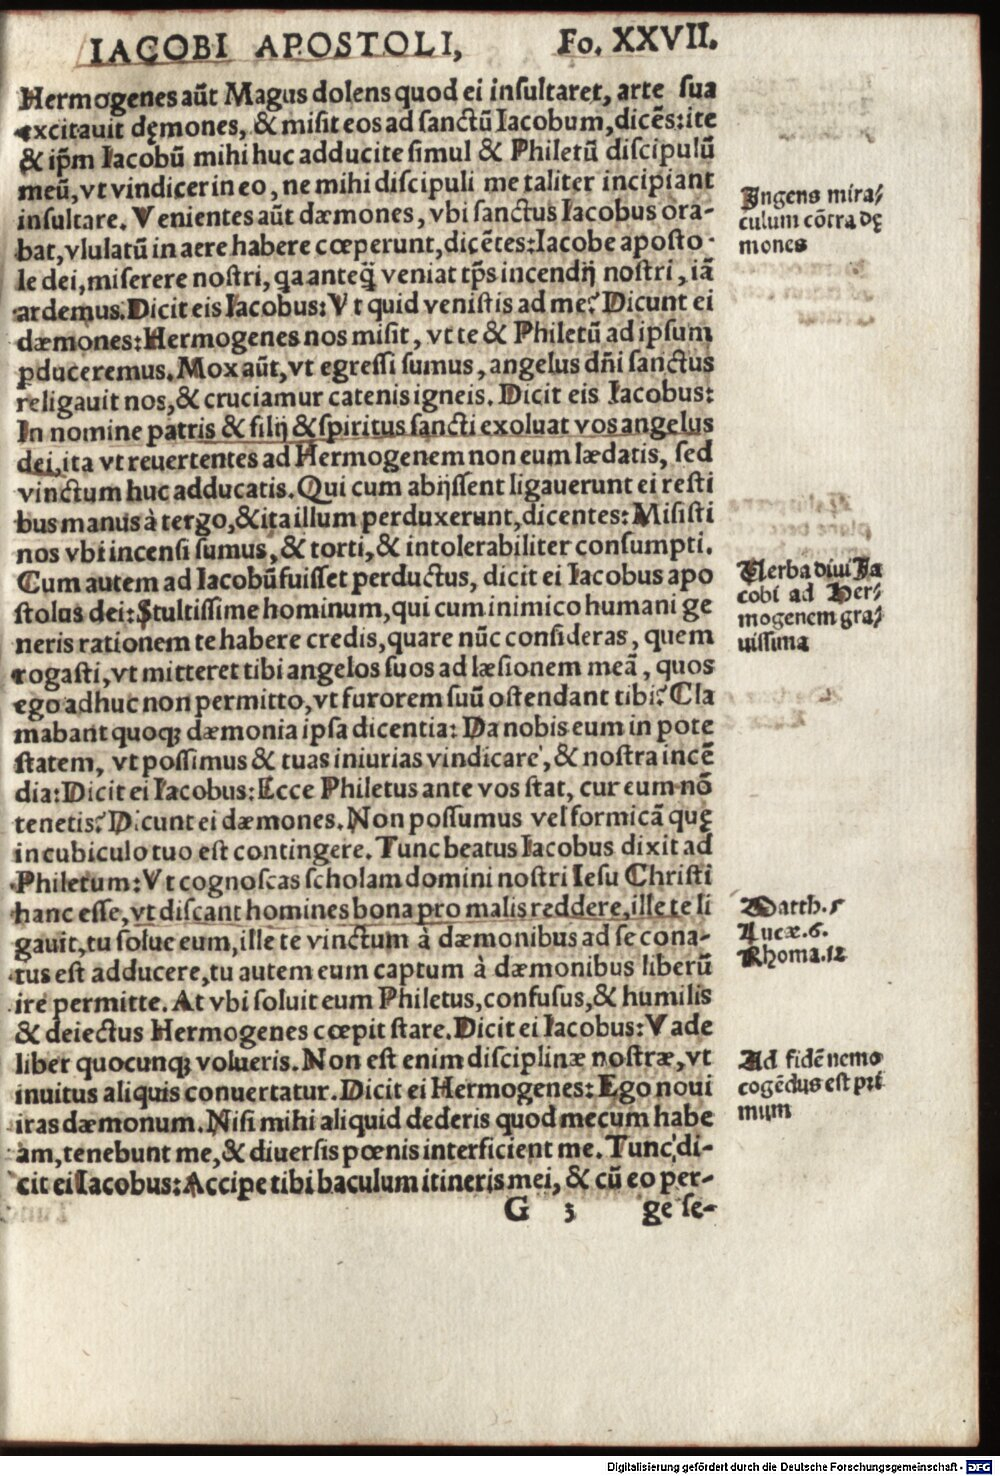 IACOBI APOSTOLI, Fo. XXVII.
Hermogenes aũt Magus dolens quod ei insultaret, arte sua
excitauit dęmones, & misit eos ad sanctũ Iacobum, dicẽs: ite
& ip̃m Iacobũ mihi huc adducite simul & Philetũ discipulũ
meũ, vt vindicer in eo, ne mihi discipuli me taliter incipiant
insultare. Venientes aũt dæmones, vbi sanctus Iacobus ora-
bat, vlulatũ in aere habere cœperunt, dicẽtes: Iacobe aposto-
le dei, miserere nostri, qa anteq̃ veniat tp̃s incendij nostri, iã
ardemus. Dicit eis Iacobus: Vt quid venistis ad me? Dicunt ei
dæmones: Hermogenes nos misit, vt te & Philetũ ad ipsum
ꝑduceremus. Mox aũt, vt egressi sumus, angelus dñi sanctus
religauit nos, & cruciamur catenis igneis. Dicit eis Iacobus:
In nomine patris & filij & spiritus sancti exoluat vos angelus
dei, ita vt reuertentes ad Hermogenem non eum lædatis, sed
vinctum huc adducatis. Qui cum abijssent ligauerunt ei resti
bus manus à tergo, & ita illum perduxerunt, dicentes: Misisti
nos vbi incensi sumus, & torti, & intolerabiliter consumpti.
Cum autem ad Iacobũ fuisset perductus, dicit ei Iacobus apo
stolus dei: Stultissime hominum, qui cum inimico humani ge
neris rationem te habere credis, quare nũc consideras, quem
rogasti, vt mitteret tibi angelos suos ad læsionem meã, quos
ego adhuc non permitto, vt furorem suũ ostendant tibi? Cla
mabant quoqꝫ dæmonia ipsa dicentia: Da nobis eum in pote
statem, vt possimus & tuas iniurias vindicare, & nostra incẽ
dia: Dicit ei Iacobus: Ecce Philetus ante vos stat, cur eum nõ
tenetis? Dicunt ei dæmones. Non possumus vel formicã quę
in cubiculo tuo est contingere. Tunc beatus Iacobus dixit ad
Philetum: Vt cognoscas scholam domini nostri Iesu Christi
hanc esse, vt discant homines bona pro malis reddere, ille te li
gauit, tu solue eum, ille te vinctum à dæmonibus ad se cona-
tus est adducere, tu autem eum captum à dæmonibus liberũ
ire permitte. At vbi soluit eum Philetus, confusus, & humilis
& deiectus Hermogenes cœpit stare. Dicit ei Iacobus: Vade
liber quocunqꝫ volueris. Non est enim disciplinæ nostræ, vt
inuitus aliquis conuertatur. Dicit ei Hermogenes: Ego noui
iras dæmonum. Nisi mihi aliquid dederis quod mecum habe
am, tenebunt me, & diuersis pœnis interficient me. Tunc di-
cit ei Iacobus: Accipe tibi baculum itineris mei, & cũ eo per-
G 3 ge se-
Ingens mira/
culum cõtra dę
mones
Verba diui Ja
cobi ad Her/
mogenem gra/
uissima
Matth. 5
Lucæ. 6.
Rhoma. 12
Ad fidẽ nemo
cogẽdus est pri
mum
Digitalisierung gefördert durch die Deutsche Forschungsgemeinschaft - DFG